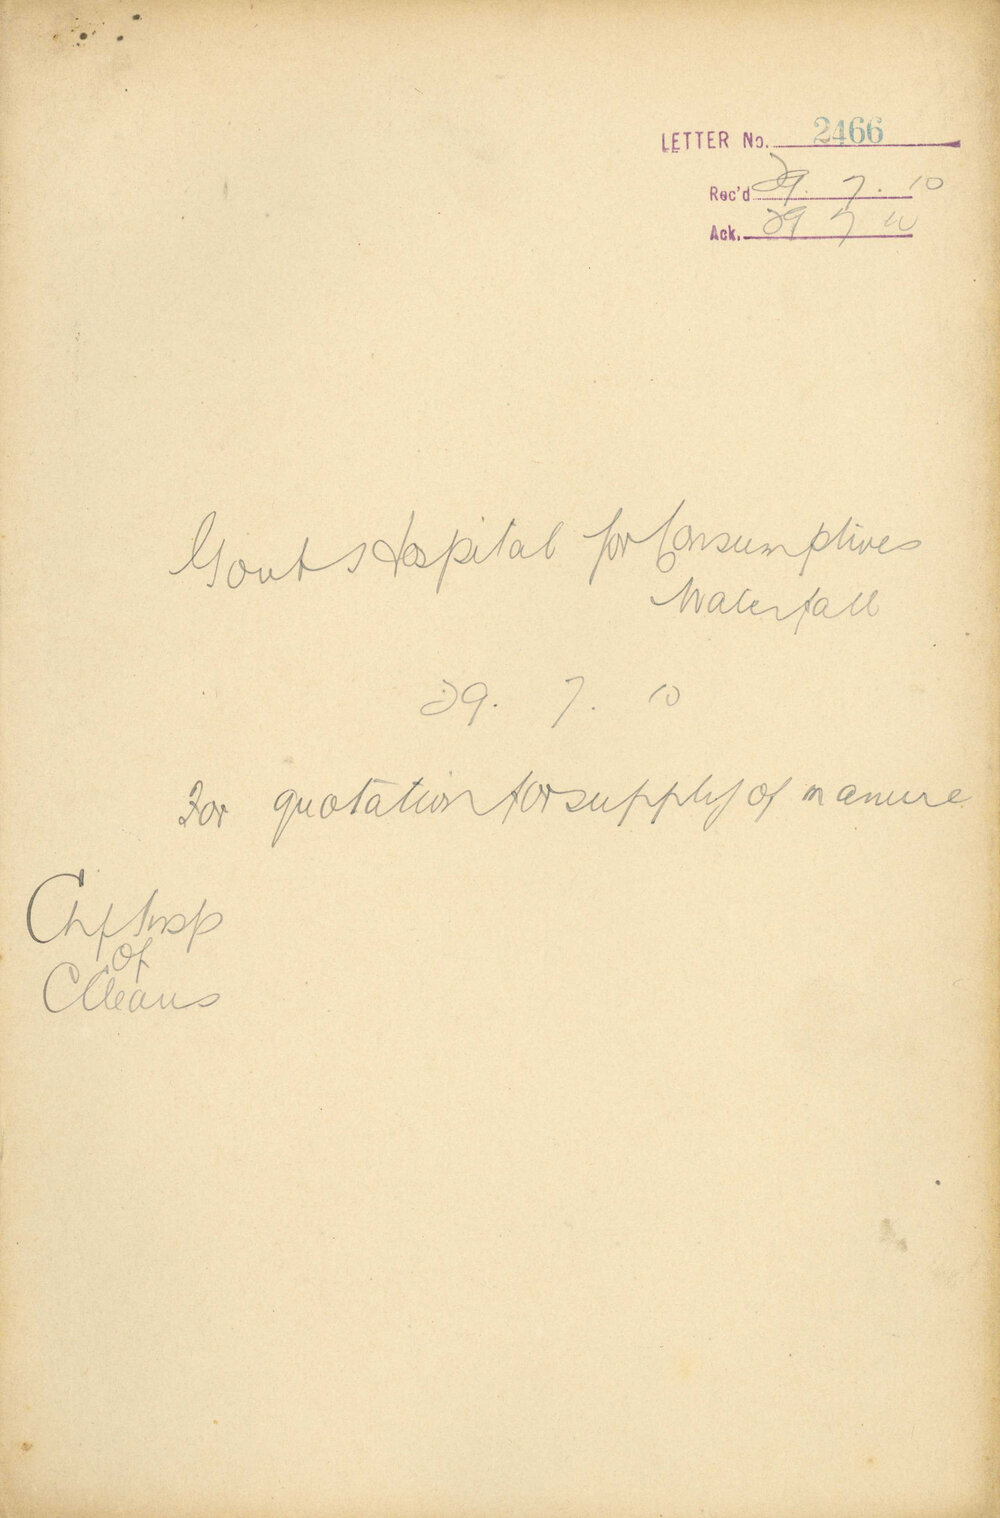 LETTER No. 2466
Rec'd 29. 7. 10
Ack. 29 7 10
Govt Hospital for Consumptives
Waterfall
29. 7. 10
For quotation for supply of manure
Chf Insp
of
Cleans